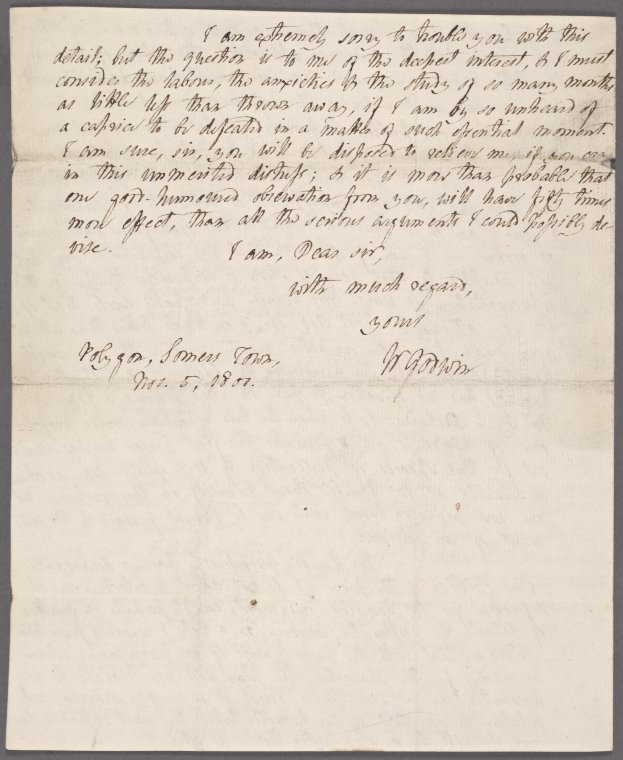 I am extremely sorry to trouble you with this
detail; but the question is to me of the deepest interest, & I must
consider the labour, the anxieties & the study of so many months
as little less than thrown away, if I am by so unheard of
a caprice to be defeated in a matter of such essential moment.
I am sure, sir, you will be disposed to relieve me, if you can
in this unmerited distress; & it is more than probable that
one good-humoured observation from you, will have fifty times
more effect, than all the serious arguments I could possibly de-
vise.
I am, Dear sir,
with much regard,
yours
W Godwin
Polygon, Somers Town,
Nov. 5, 1801.